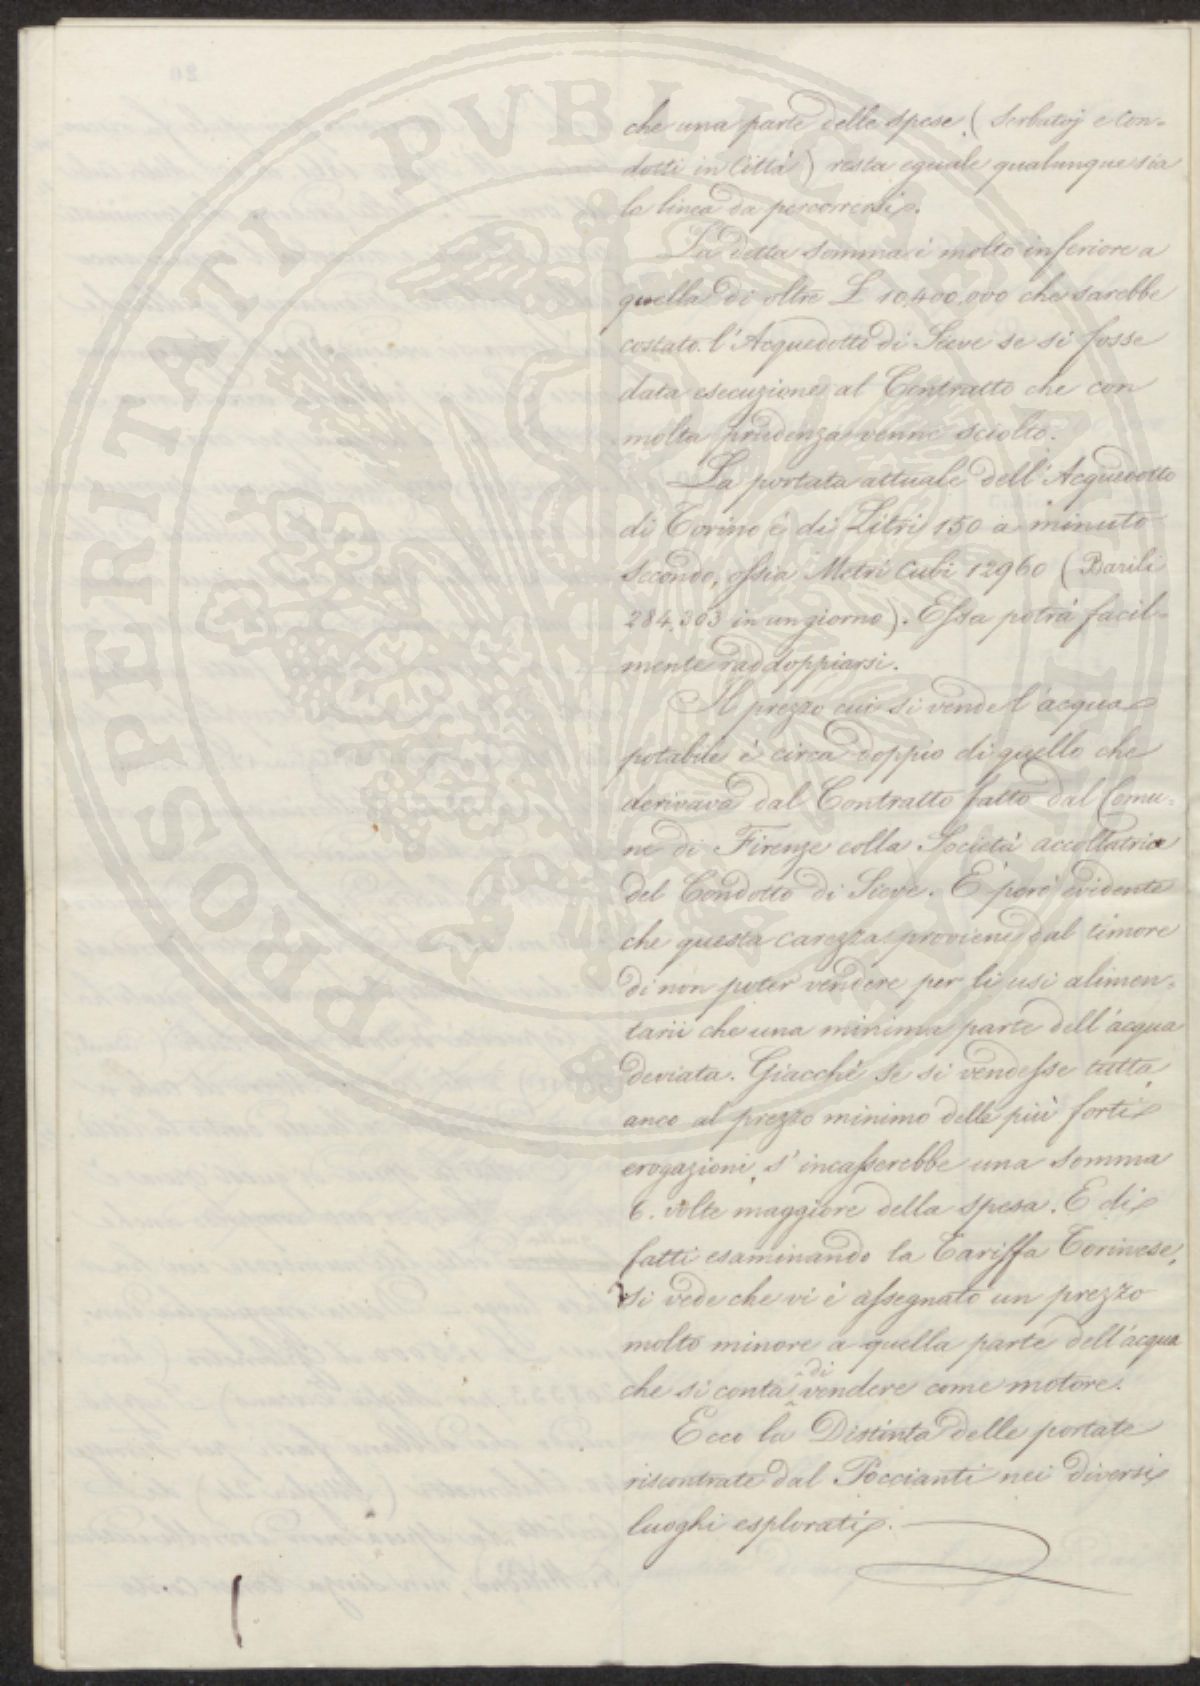 che una parte delle spese (Serbatoj e Con-
dotti in Città) resta eguale qualunque sia
la linea da percorrersi.
La detta Somma è molto inferiore a
quella di oltre L 10,400,000 che sarebbe
costato l'Acquedotto di Sieve se si fosse
data esecuzione al Contratto che con
molta prudenza venne sciolto.
La portata attuale dell'Acquedotto
di Torino è di Litri 150 a minuto
secondo, ossia Metri Cubi 12960 (Barili
284,303 in un giorno). Essa potrà facil-
mente raddoppiarsi.
Il prezzo cui si vende l'acqua
potabile è circa doppio di quello che
derivava dal Contratto fatto dal Comu-
ne di Firenze colla Società accollatrice
del Condotto di Sieve. È però evidente
che questa carezza proviene dal timore
di non poter vendere per li usi alimen-
tarii che una minima parte dell'acqua
deviata. Giacchè se si vendesse tutta
anco al prezzo minimo delle più forti
erogazioni, s'incasserebbe una somma
6. volte maggiore della spesa. E di
fatti esaminando la Tariffa Torinese,
si vede che vi è assegnato un prezzo
molto minore a quella parte dell'acqua
che si conta di vendere come motore.
Ecco la Distinta delle portate
riscontrate dal Poccianti nei diversi
luoghi esplorati.
PROSPERITATI PUBLICAE